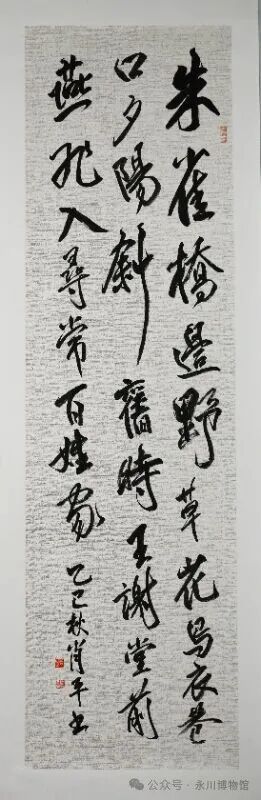 朱雀橋邊野草花烏衣巷
口夕陽斜舊時王謝堂前
燕飛入尋常百姓家
乙巳秋肖平書
公众号·永川博物馆